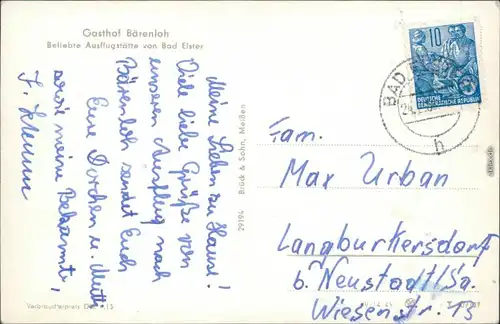 Gasthof Bärenloh
Beliebte Ausflugstätte von Bad Elster
Meine Lieben zu Hause!
Viele liebe Grüße von
unserem Ausflug nach
Bärenloh sendet Euch
Eure Dorchen u. Mutti
sowie meine Bekannte,
Brück & Sohn, Meißen
29194
Verbraucherpreis DM -.15
10
DEUTSCHE
DEMOKRATISCHE REPUBLIK
BAD
h
Fam.
Max Urban
Langburkersdorf
b. Neustadt/Sa.
Wiesenstr. 13